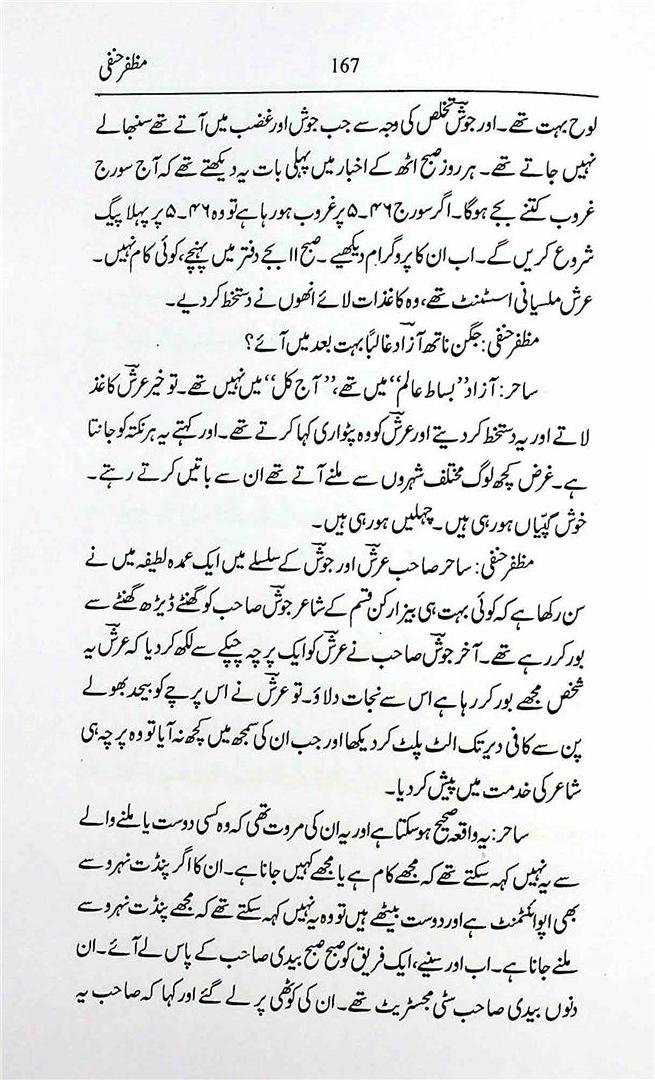 مظفر حنفی 167
لوح بہت تھے۔ اور جوشؔ تخلص کی وجہ سے جب جوش اور غضب میں آتے تھے سنبھالے
نہیں جاتے تھے۔ ہر روز صبح اٹھ کے اخبار میں پہلی بات یہ دیکھتے تھے کہ آج سورج
غروب کتنے بجے ہوگا۔ اگر سورج ۴۶۔۵ پر غروب ہو رہا ہے تو وہ ۴۶۔۵ پر پہلا پیگ
شروع کریں گے۔ اب ان کا پروگرام دیکھیے۔ صبح ۱۱ بجے دفتر میں پہنچے، کوئی کام نہیں۔
عرش ملسیانی اسسٹنٹ تھے، وہ کاغذات لائے انھوں نے دستخط کردیے۔
مظفر حنفی: جگن ناتھ آزادؔ غالباً بہت بعد میں آئے؟
ساحر: آزاد ”بساط عالم“ میں تھے، ”آج کل“ میں نہیں تھے۔ تو خیر عرشؔ کاغذ
لاتے اور یہ دستخط کردیتے اور عرشؔ کو وہ پٹواری کہا کرتے تھے۔ اور کہتے یہ ہر نکتہ کو جانتا
ہے۔ غرض کچھ لوگ مختلف شہروں سے ملنے آتے تھے ان سے باتیں کرتے رہتے۔
خوش گپیّاں ہورہی ہیں۔ چہلیں ہورہی ہیں۔
مظفر حنفی: ساحر صاحب عرشؔ اور جوشؔ کے سلسلے میں ایک عمدہ لطیفہ میں نے
سن رکھا ہے کہ کوئی بہت ہی بیزار کن قسم کے شاعر جوشؔ صاحب کو گھنٹے ڈیڑھ گھنٹے سے
بور کر رہے تھے۔ آخر جوشؔ صاحب نے عرشؔ کو ایک پرچہ چپکے سے لکھ کر دیا کہ عرشؔ یہ
شخص مجھے بور کر رہا ہے اس سے نجات دلاؤ۔ تو عرشؔ نے اس پرچے کو بیحد بھولے
پن سے کافی دیر تک الٹ پلٹ کر دیکھا اور جب ان کی سمجھ میں کچھ نہ آیا تو وہ پرچہ ہی
شاعر کی خدمت میں پیش کردیا۔
ساحر: یہ واقعہ صحیح ہوسکتا ہے اور یہ ان کی مروت تھی کہ وہ کسی دوست یا ملنے والے
سے یہ نہیں کہہ سکتے تھے کہ مجھے کام ہے یا مجھے کہیں جانا ہے۔ ان کا اگر پنڈت نہرو سے
بھی اپوائنٹمنٹ ہے اور دوست بیٹھے ہیں تو وہ یہ نہیں کہہ سکتے تھے کہ مجھے پنڈت نہرو سے
ملنے جانا ہے۔ اب اور سنیے، ایک فریق کو صبح صبح بیدی صاحب کے پاس لے آئے۔ ان
دنوں بیدی صاحب سٹی مجسٹریٹ تھے۔ ان کی کوٹھی پر لے گئے اور کہا کہ صاحب یہ